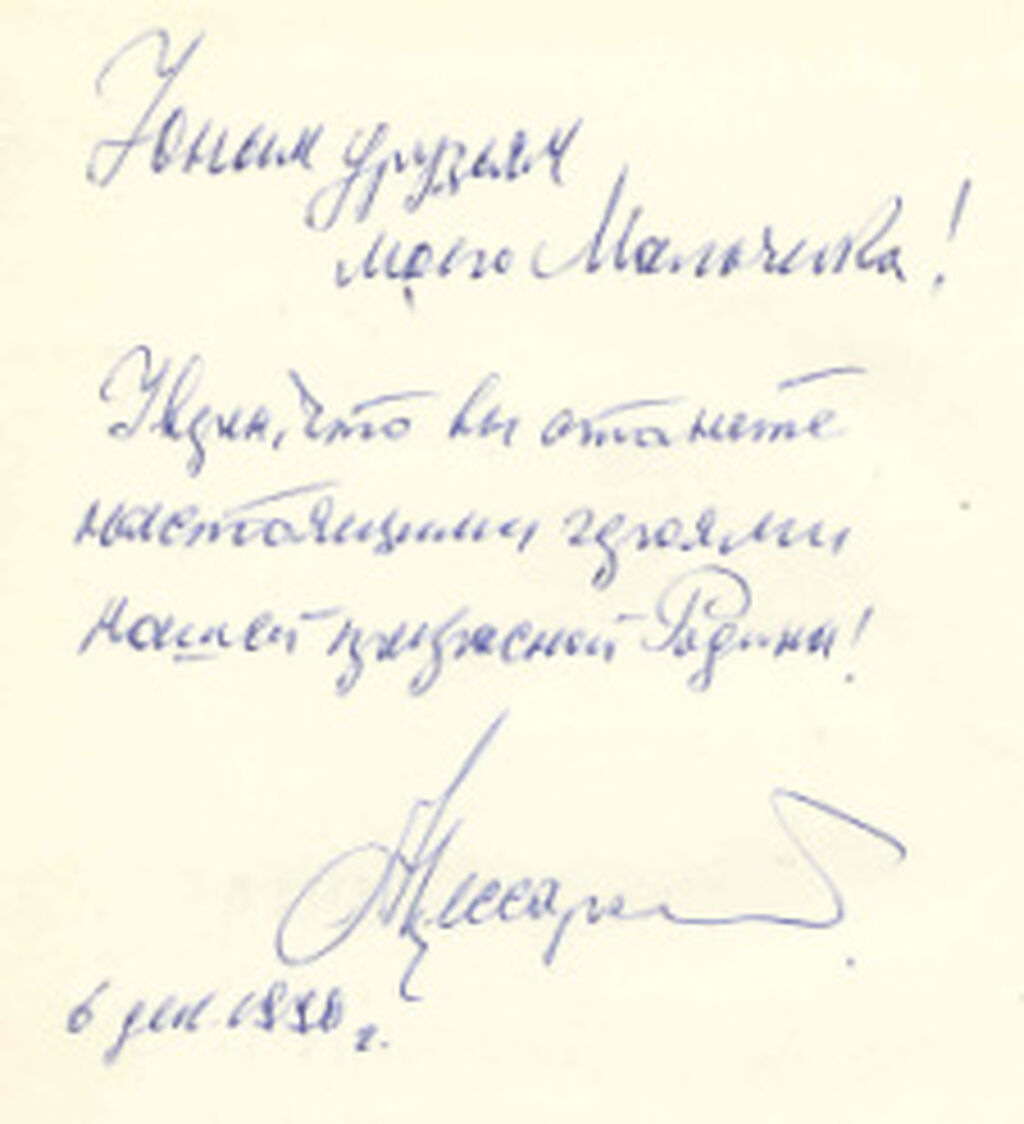 Юным друзьям
моего Мальчика!
Уверен, что вы станете
настоящими героями
нашей прекрасной Родины!
6 дек. 1998 г.